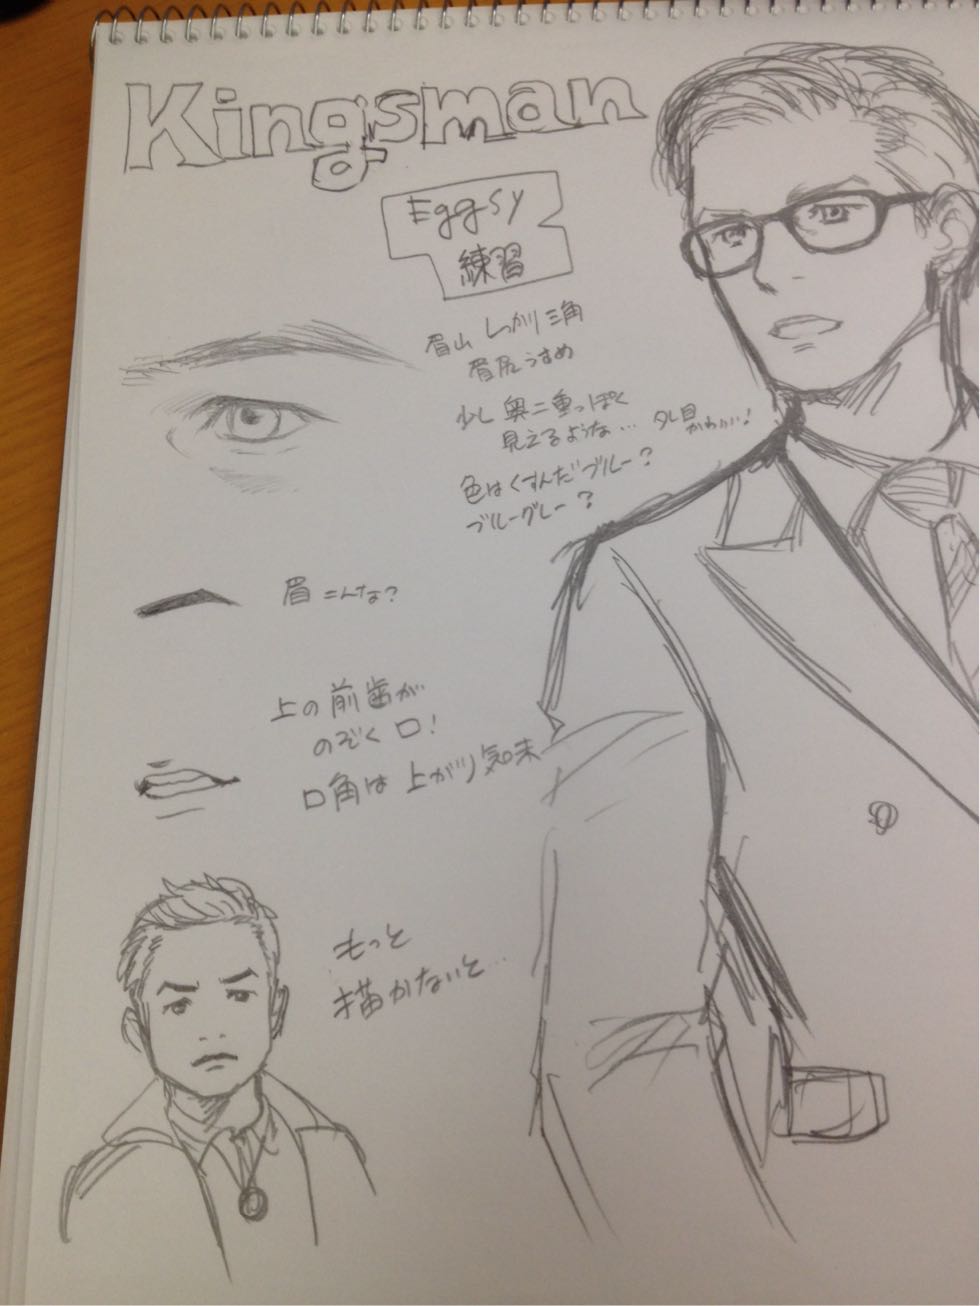 Kingsman
Eggsy
練習
眉山 しっかり三角
眉尻うすめ
少し 奥二重っぽく
見えるような… タレ目
かわいい!
色はくすんだブルー?
ブルーグレー?
眉 こんな?
上の前歯が
のぞく口!
口角は 上がり気味
もっと
描かないと…